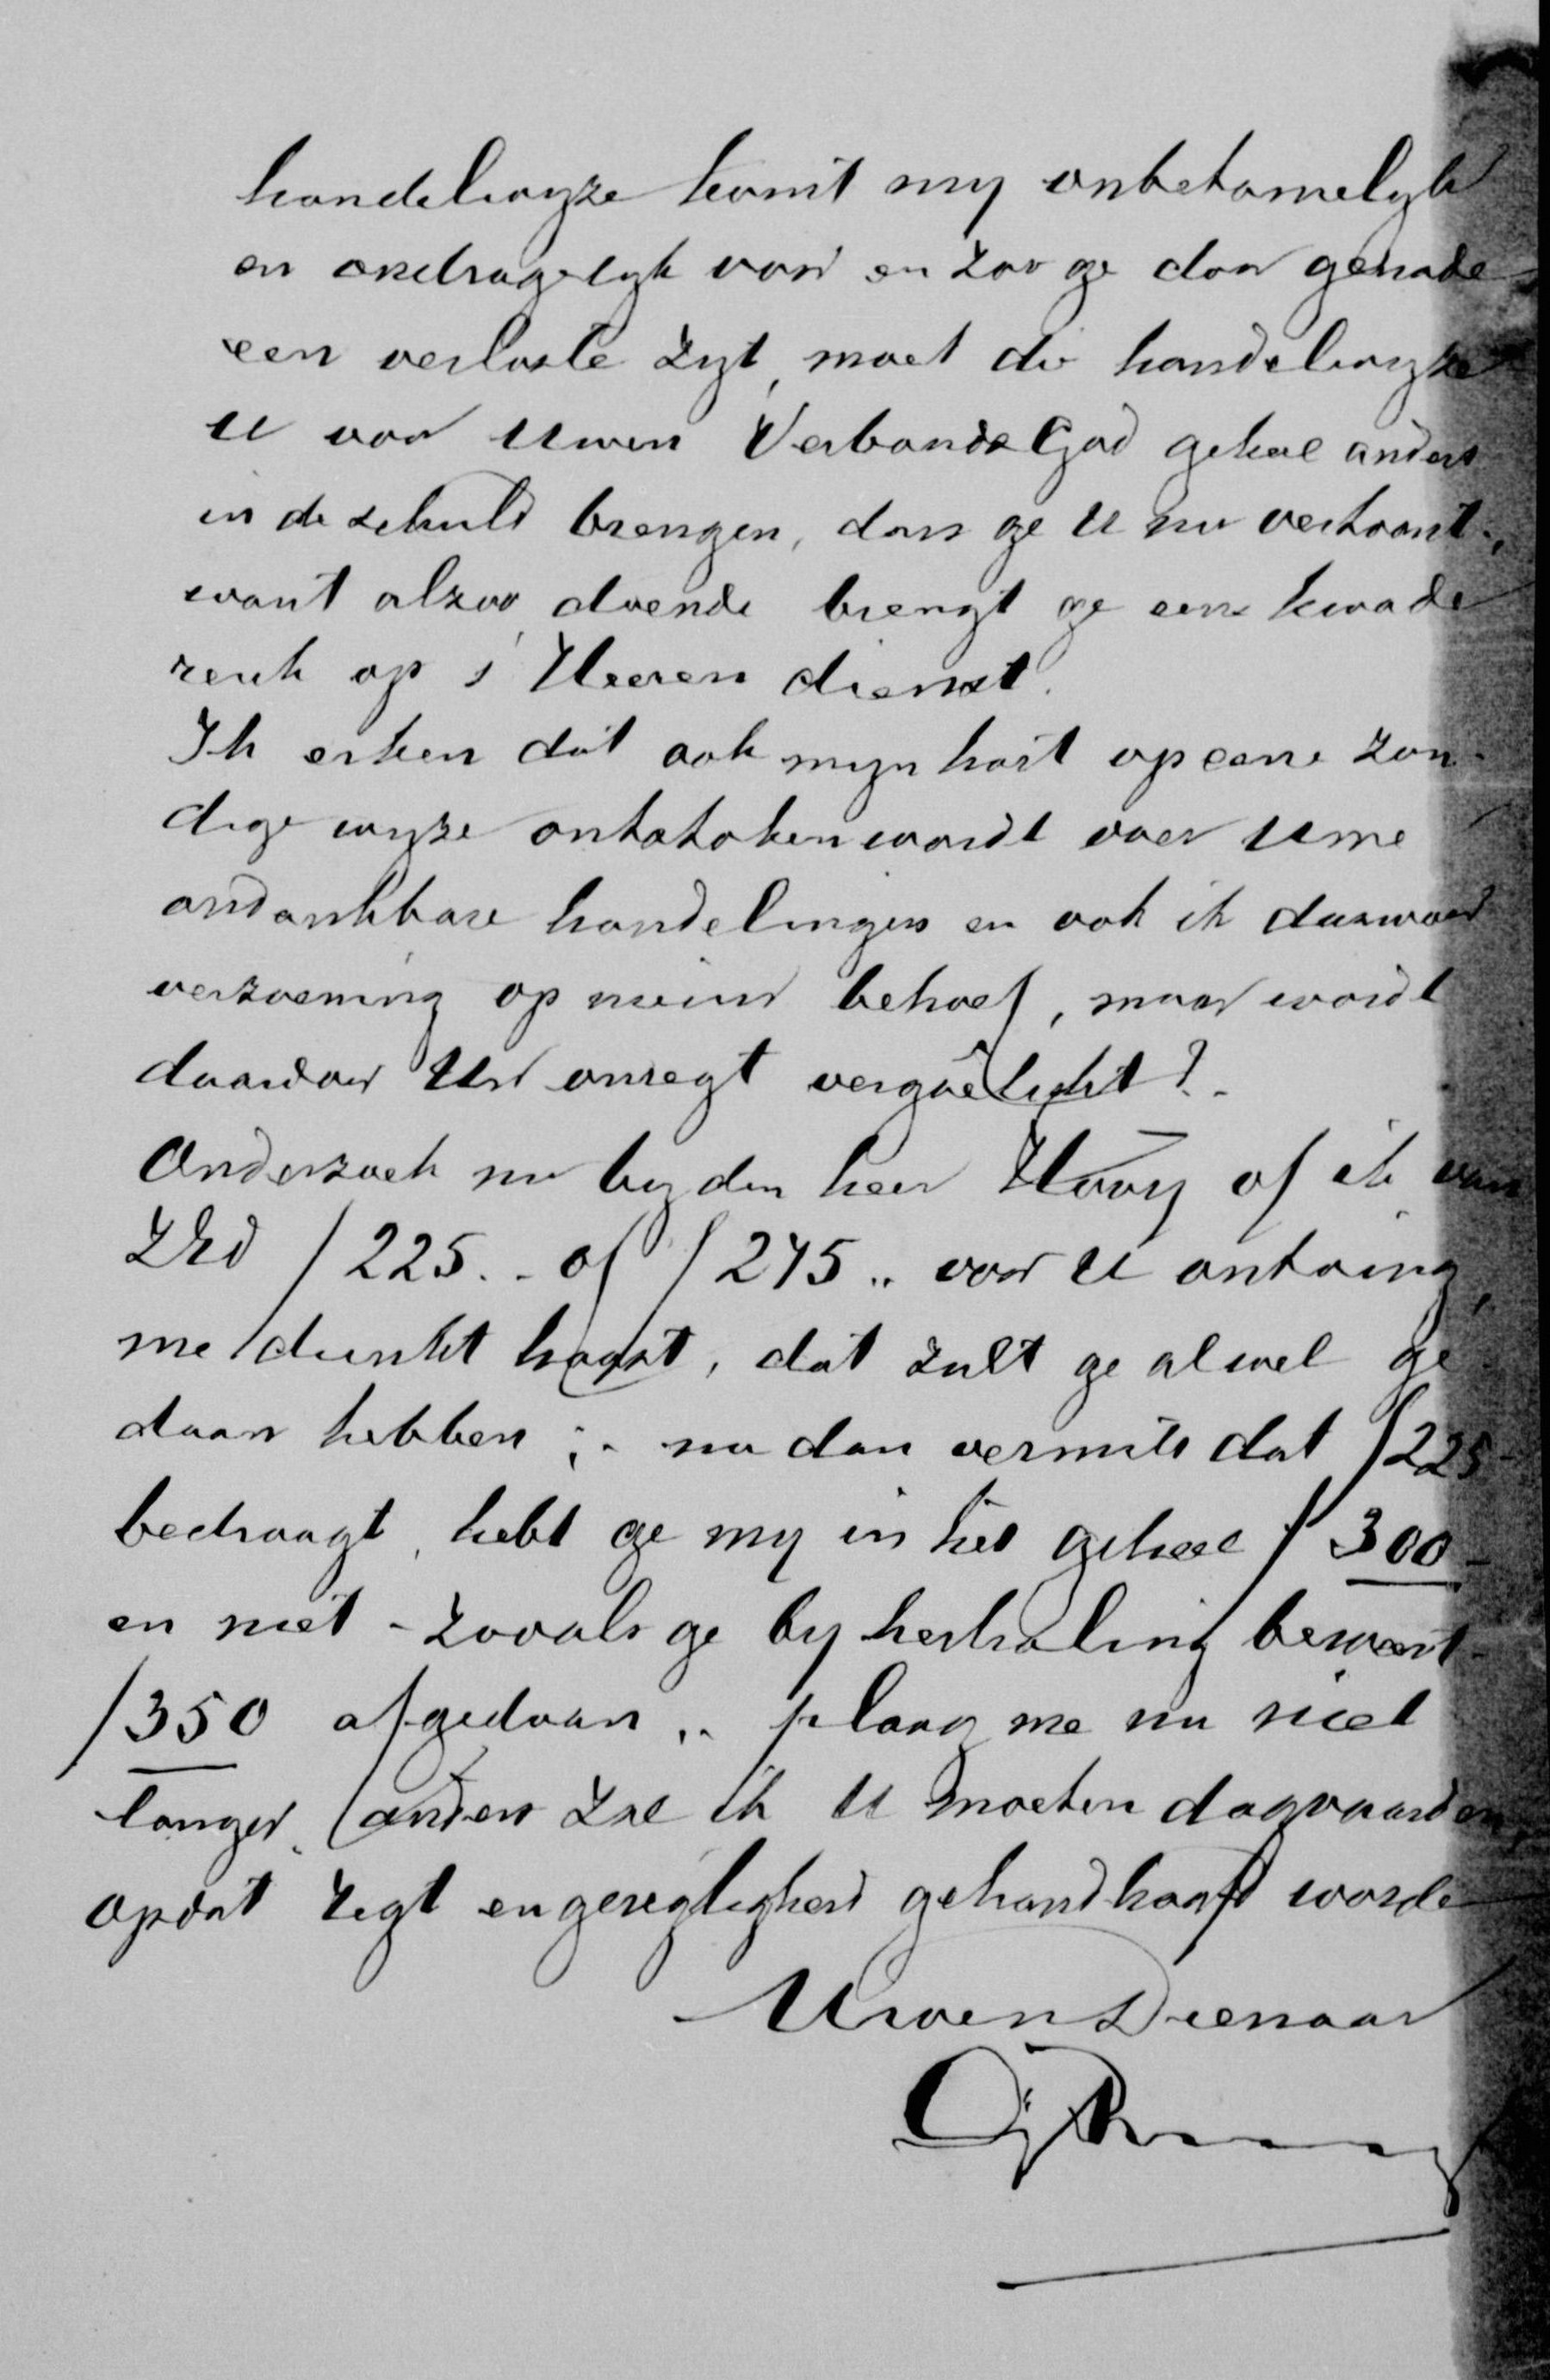 handelwyze komt my onbetamelyk
en ondragelyk voor en zoo ge door genade
een verloste zyt, moet die handelwyze
U voor Uwen Verbonds God geheel anders
in de schuld brengen, dan ge U nu vertoont.,
want alzoo doende brengt ge eene kwade
reuk op s' Heeren dienst.
Ik erken dat ook myn hart op eene zon-
dige wyze ontstoken wordt over Uwe
ondankbare handelingen en ook ik daarvoor
verzoening op nieuw behoef, maar wordt
daardoor Uw onregt vergoêlykt?.
Onderzoek nu by den heer Hovy of ik van
ZEd f 225.- of f 275.. voor U ontving,
me dunkt haast, dat zult ge al wel ge-
daan hebben;- nu dan vermits dat f 225-
bedraagt, hebt ge my in het geheel f 300-
en niet - zooals ge by herhaling beweert-
f 350 afgedaan.. plaag me nu niet
langer, anders zal ik U moeten dagvaarden,
opdat regt en geregtigheid gehandhaafd worde
Uwen Dienaar